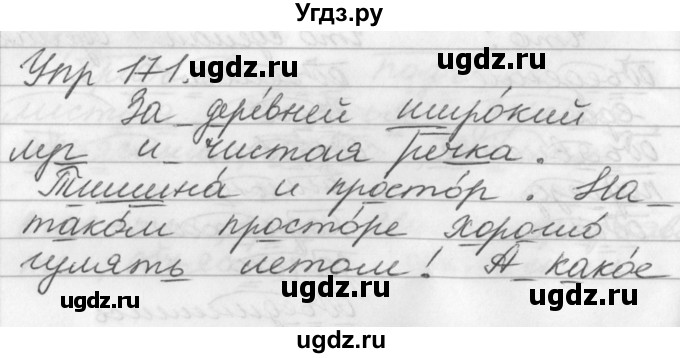 Угдз.ру
Упр 171.
ugdz.ru ugdz.ru
За деревней широкий
луг и чистая речка.
ugdz.ru ugdz.ru
Тишина́ и просто́р. На
тако́м просто́ре хорошо́
гулять летом! А како́е
ugdz.ru ugdz.ru
ugdz.ru ugdz.ru